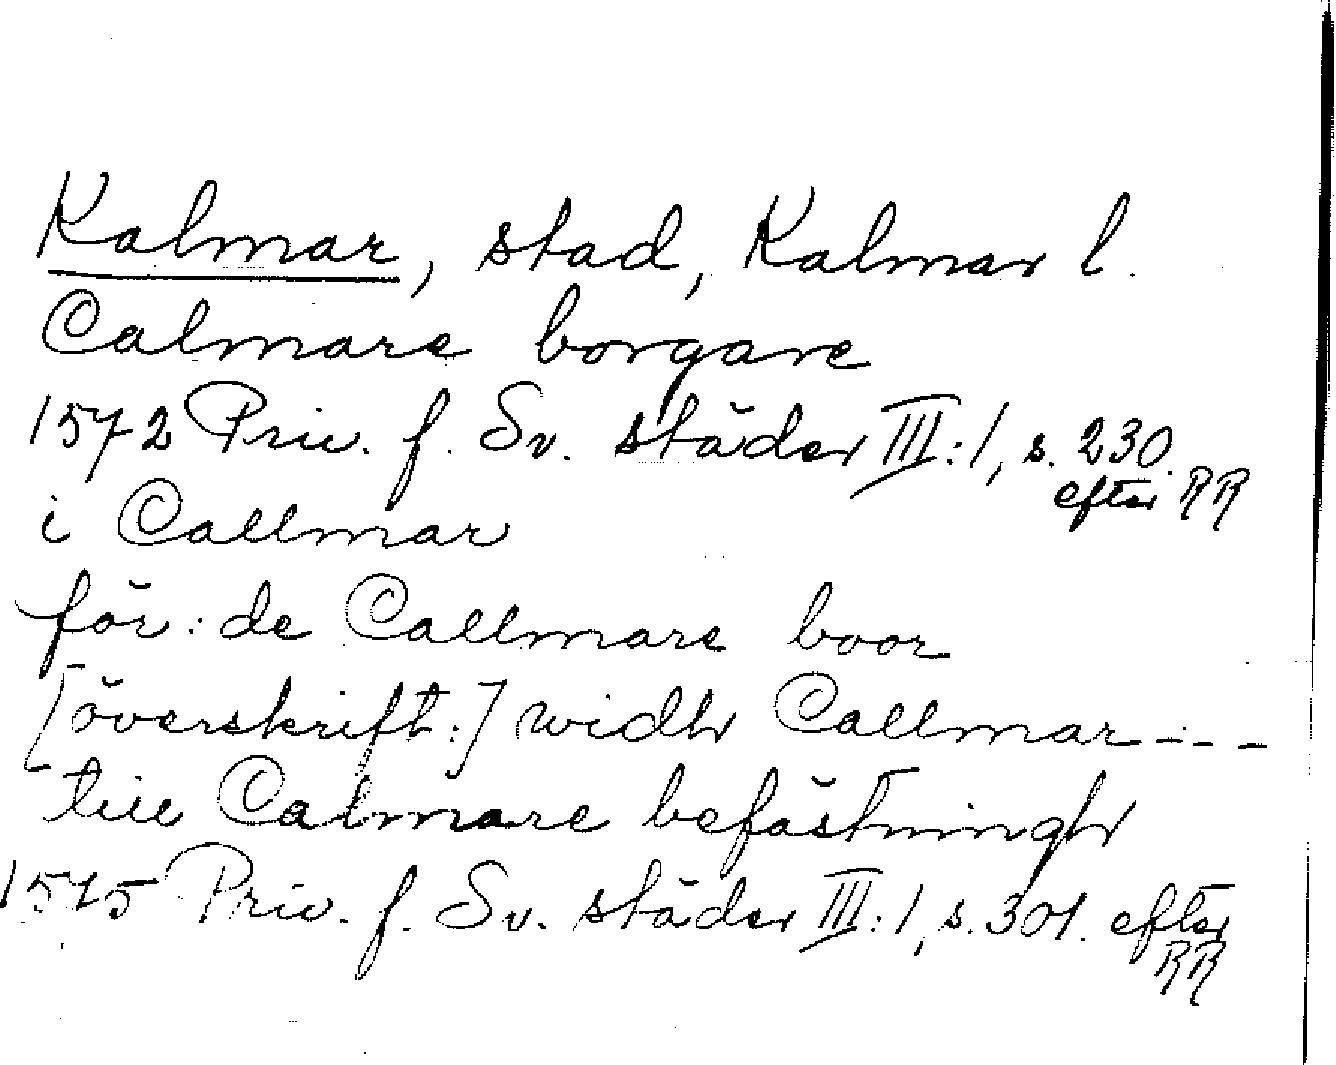 Kalmar, stad, Kalmar l.
Calmare borgare
1572 Priv. f. Sv. städer III:1, s. 230.
efter RR
i Callmar
för: de Callmare boor
[överskrift:] widh Callmar ---
till Calmare befästningh
1575 Priv. f. Sv. städer III:1, s. 301. efter
RR